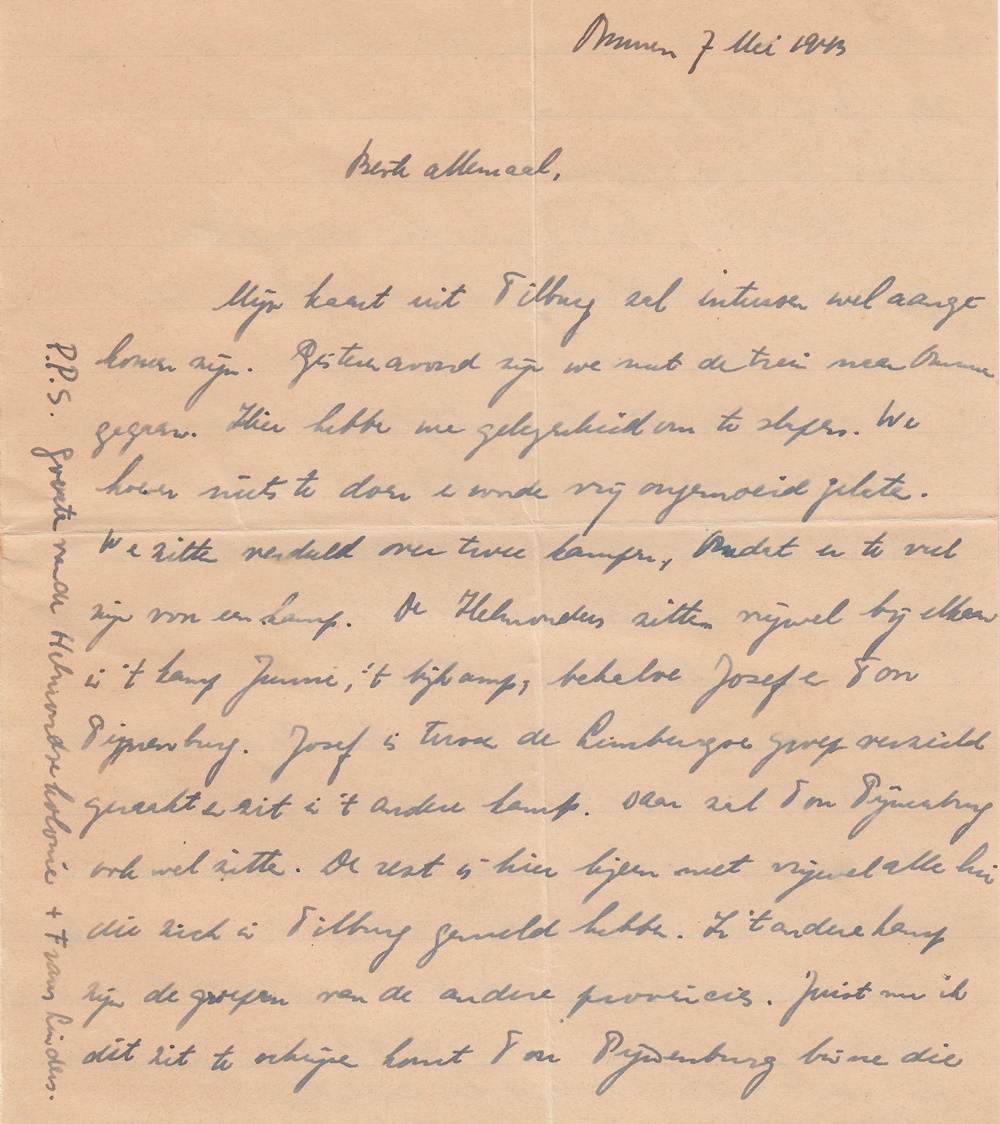 Ommen 7 Mei 1943
Beste allemaal,
Mijn kaart uit Tilburg zal intussen wel aange
komen zijn. Gisteravond zijn we met de trein naar Ommen
gegaan. Hier hebben we gelegenheid om te slapen. We
hoeven niets te doen en worden vrij ongemoeid gelaten.
We zitten verdeeld over twee kampen, Omdat er te veel
zijn voor een kamp. De Helmonders zitten vrijwel bij elkaar
in 't kamp Junne, 't bijkamp, behalve Josef en Ton
Pijnenburg. Josef is tussen de Limburgse groep verzeild
geraakt en zit in 't andere kamp. Daar zal Ton Pijnenburg
ook wel zitten. De rest is hier bijeen met vrijwel alle lui
die zich in Tilburg gemeld hebben. In 't andere kamp
zijn de groepen van de andere provincies. Juist nu ik
dit zit te schrijven komt Ton Pijnenburg binnen die
P.P.S. Groeten van de Helmondse kolonie + Frans Linders.